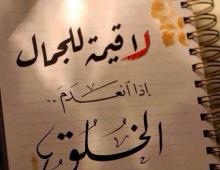 لا قيمة للجمال
إذا انعدَمَ ..
الخُلُق